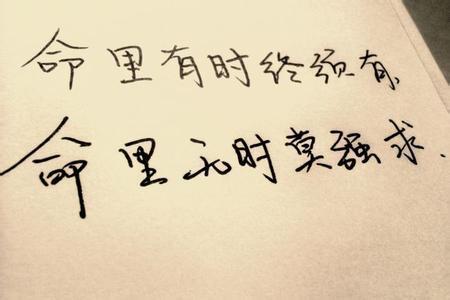 命里有时终须有、
命里无时莫强求.